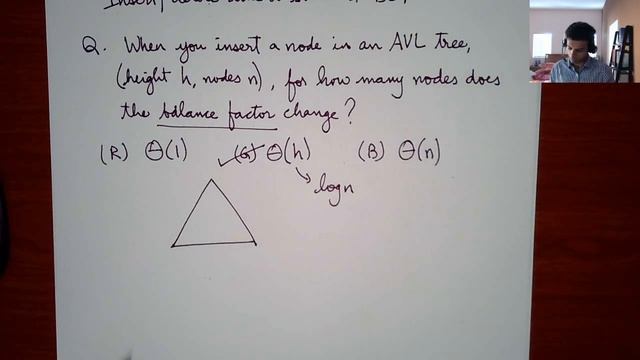 Q. When you insert a node in an AVL tree,
(height h, nodes n), for how many nodes does
the balance factor change?
(R) Θ(1) ✓(G) Θ(h) (B) Θ(n)
↘ log n